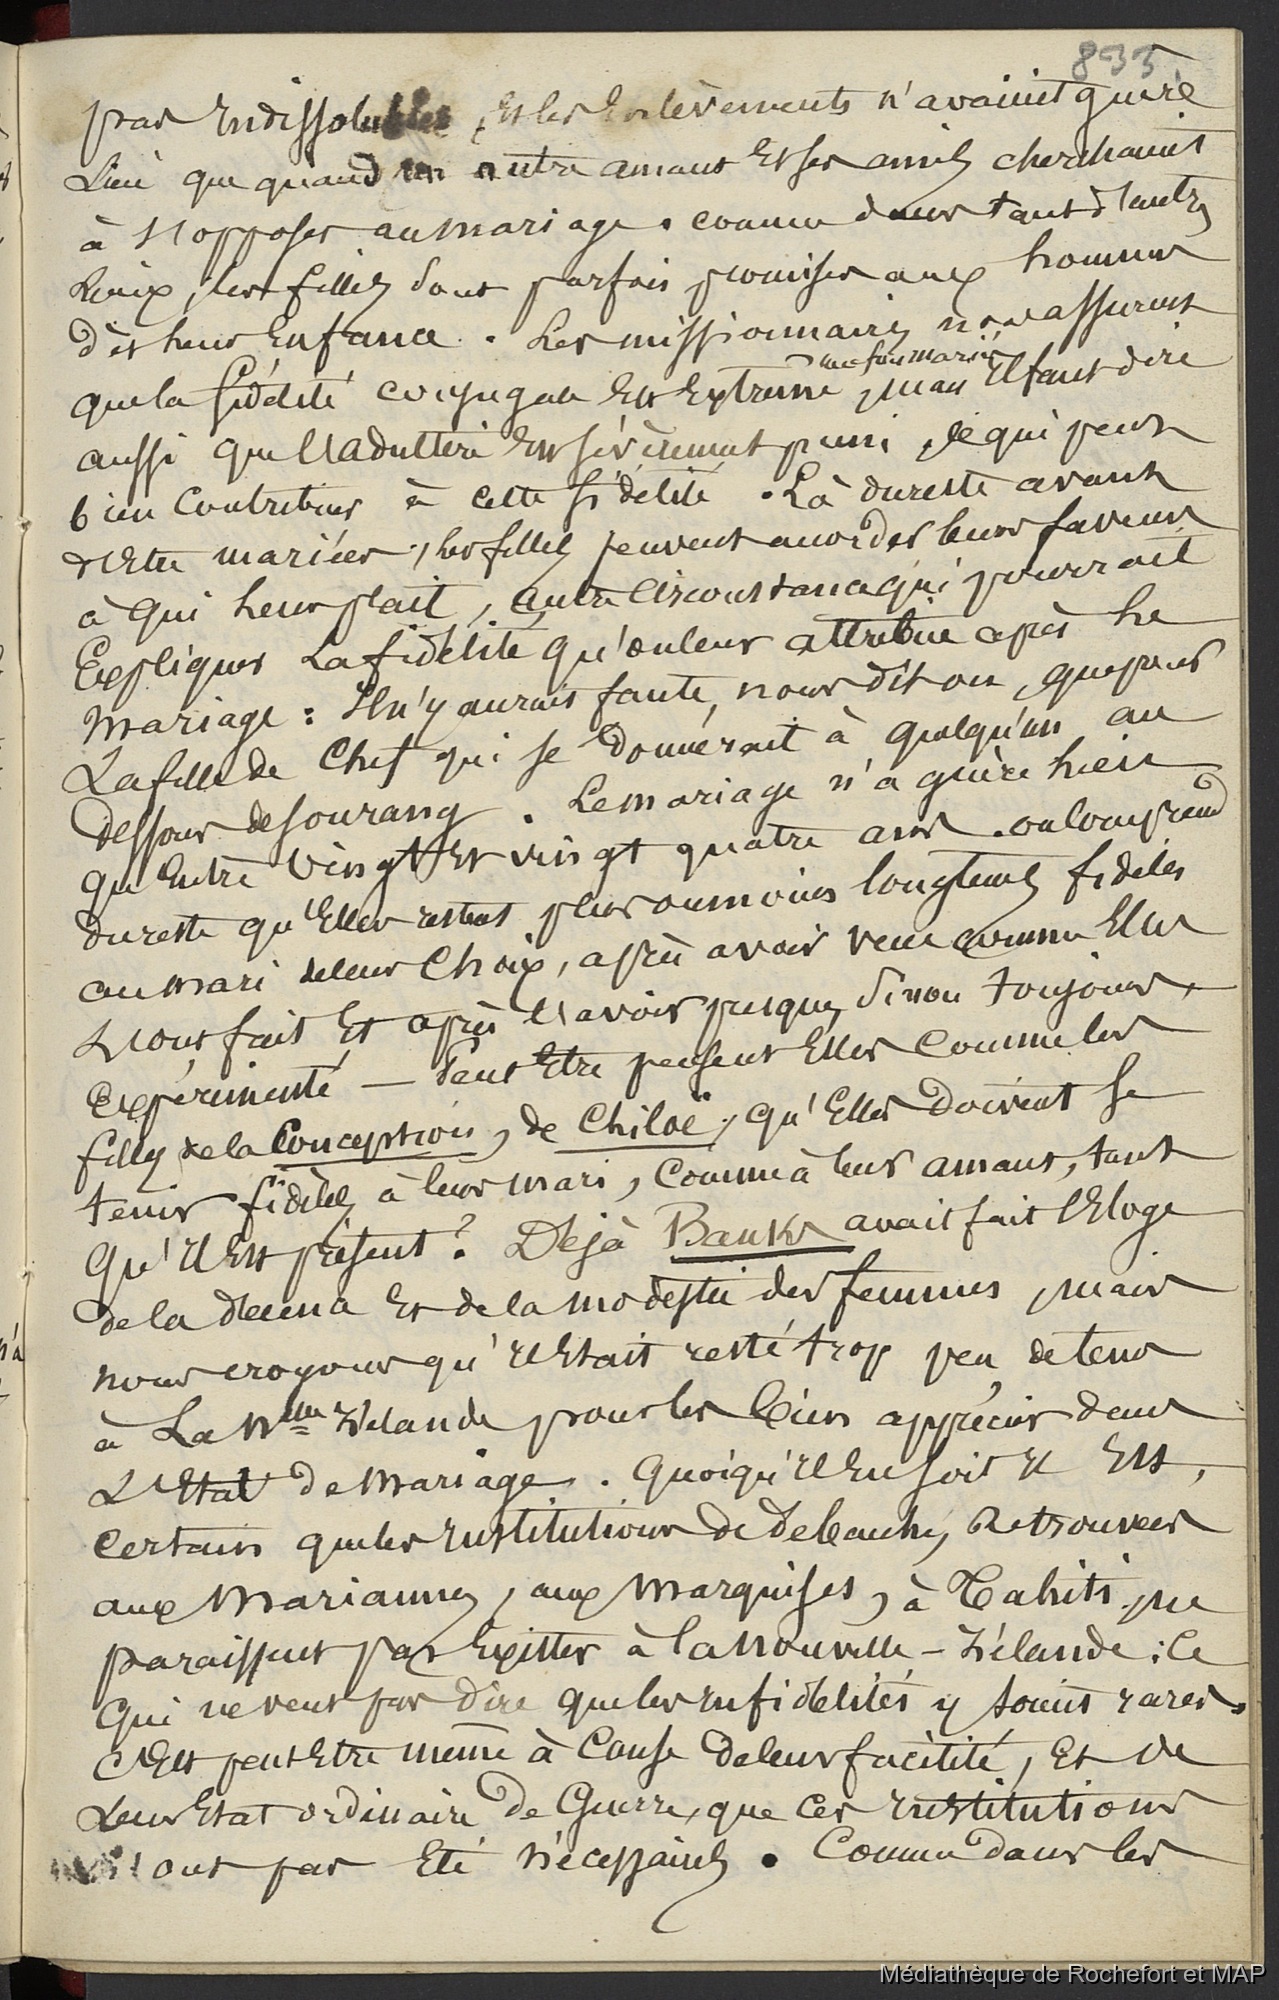 833
pas indissolubles, et les enlèvements n'avaient guère
lieu que quand un autre amant et ses amis cherchaient
à s'opposer au mariage. comme dans tant d'autres
lieux, les filles sont parfois promises aux hommes
dès leur enfance. Les missionnaires nous assurent
que la fidélité conjugale est extreme, mais il faut dire
une fois mariés
aussi que l'adultère est sévèrement puni, ce qui peut
bien contribuer à cette fidélité. Là dureste avant
d'etre mariées, les filles peuvent accorder leurs faveurs
à qui leur plait, autre circonstance qui pourrait
Expliquer la fidélité qu'on leur attribue après le
mariage: Il n'y aurait faute, nous dit on, que pour
La fille de Chef qui se donnerait à quelqu'un au
dessous de son rang. Le mariage n'a guère lieu
qu'entre vingt et vingt quatre ans. on comprend
dureste qu'Elles restent plus ou moins longtems fidèles
au mari de leur choix, après avoir vécu comme Elles
L'ont fait Et après l'avoir presque, sinon toujours,
Expérimenté — Peut Etre pensent Elles comme les
filles de la Conception, de Chiloë, qu'Elles doivent se
tenir fidèles à leur mari, comme à leur amant, tant
qu'il est présent? Déjà Banks avait fait l'Eloge
de la décence et de la modestie des femmes, mais
nous croyons qu'il Etait resté trop peu de tems
à La Nlle Zélande pour les bien apprécier dans
L'Etat de mariage. Quoiqu'il en soit il Est,
certain que les institutions de débauche, retrouvées
aux Mariannes, aux Marquises, à Tahiti, ne
paraissent pas Exister à la Nouvelle-Zélande; ce
qui ne veut pas dire que les infidélités y soient rares.
C'Est peut Etre même à cause de leur facilité, Et de
Leur Etat ordinaire de Guerre, que ces institutions
n'y ont pas Eté nécessaires. Comme dans les
Médiathèque de Rochefort et MAP